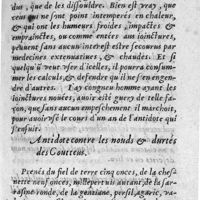 dus, que de les dissouldre. Bien est vray, que
ceux qui ne sont point intemperés en chaleur,
& qui ont les humeurs froides, impactes &
emprainctes, ou comme entées aux ioinctures,
peuuent sans aucun interest estre secourus par
medecines extenuatiues, & chaudes. Et si
quelqu'ũ veut vser d'icelles, il pourra consum-
mer les calculs, & defendre qu'il ne s'en engen-
dre d'autres. I'ay congneu homme ayant les
ioinctures nouées, auoir esté guery de telle fa-
çon, que sans aucun empeschement il marchoit,
pour auoir vsé le cours d'un an de l'antidote qui
s'ensuit.
Antidote contre les nouds & durtés
des Goutteux.
Prenés du fiel de terre cinq onces, de la ches-
nette neuf onces, millepertuis autant, de la sar-
rasine ronde, de la gentiane, persil, agaric, va-